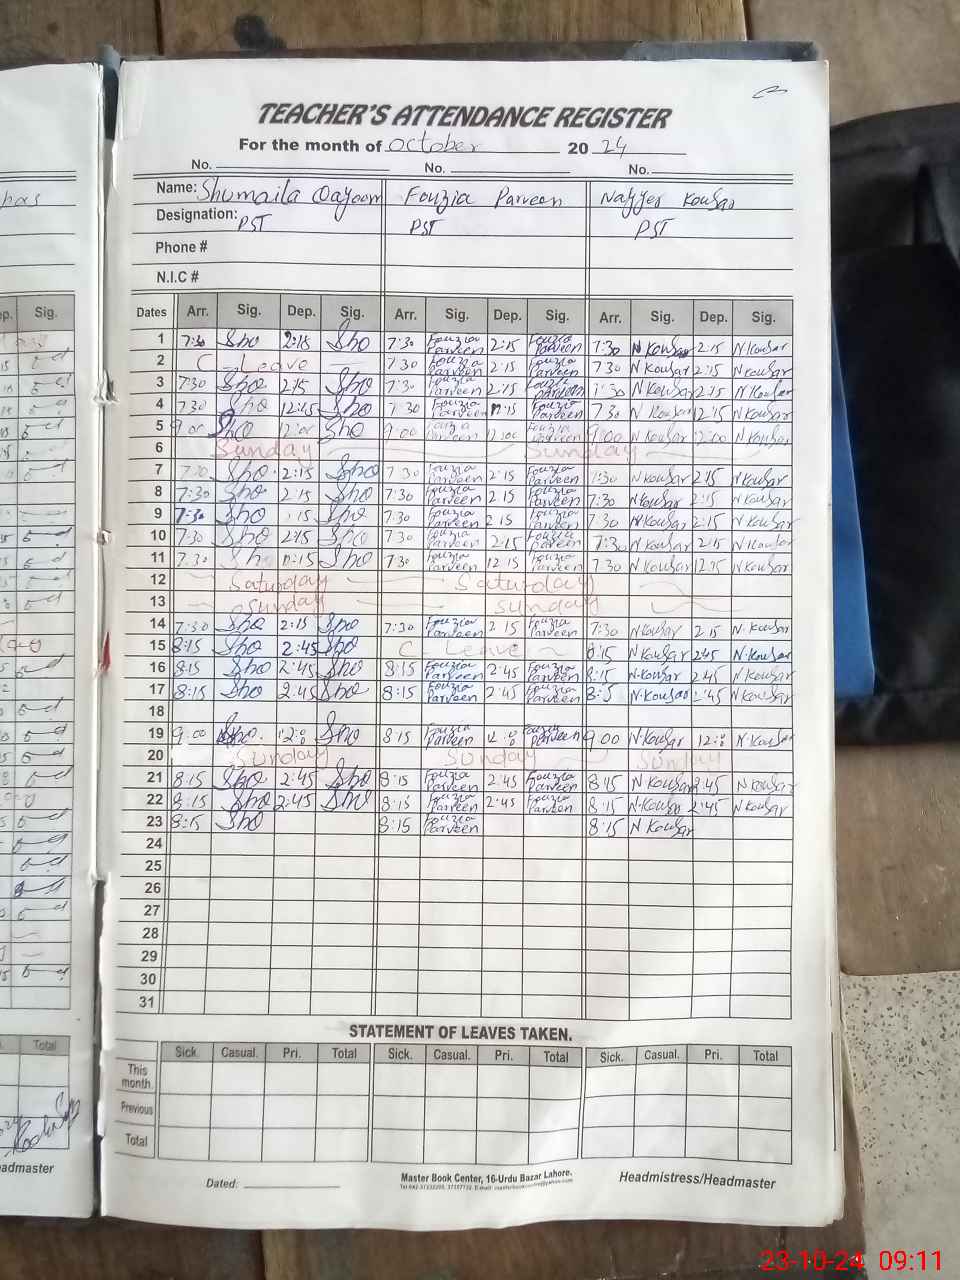 TEACHER'S ATTENDANCE REGISTER
For the month of October 2024
No. No. No.
Name: Shumaila Qayoom Fouzia Parveen Nayyer Kousar
Designation: PST PST PST
Phone #
N.I.C #
Dates Arr. Sig. Dep. Sig. Arr. Sig. Dep. Sig. Arr. Sig. Dep. Sig.
1 7:30 Sho 2:15 Sho 7:30 Fouzia Parveen 2:15 Fouzia Parveen 7:30 N Kousar 2:15 N Kousar
2 C Leave 7 30 Fouzia Parveen 2:15 Fouzia Parveen 7:30 N Kousar 2:15 N Kousar
3 7:30 Sho 2:15 Sho 7:30 Fouzia Parveen 2:15 Fouzia Parveen 7:30 N Kousar 2:15 N Kousar
4 7:30 Sho 12:15 Sho 7 30 Fouzia Parveen 12:15 Fouzia Parveen 7 30 N Kousar 12:15 N Kousar
5 9 00 Sho 12:00 Sho 9:00 Fouzia Parveen 12:00 Fouzia Parveen 9:00 N Kousar 12:00 N Kousar
6 Sunday Sunday
7 7:30 Sho 2:15 Sho 7 30 Fouzia Parveen 2:15 Fouzia Parveen 7:30 N Kousar 2:15 N Kousar
8 7:30 Sho 2:15 Sho 7:30 Fouzia Parveen 2:15 Fouzia Parveen 7:30 N Kousar 2:15 N Kousar
9 7:30 Sho :15 Sho 7:30 Fouzia Parveen 2 15 Fouzia Parveen 7 30 N Kousar 2:15 N Kousar
10 7:30 Sho 2:15 Sho 7:30 Fouzia Parveen 2:15 Fouzia Parveen 7:30 N Kousar 2:15 N Kousar
11 7:30 Sho 12:15 Sho 7:30 Fouzia Parveen 12 15 Fouzia Parveen 7 30 N Kousar 12:15 N Kousar
12 Saturday Saturday
13 Sunday Sunday
14 7:30 Sho 2:15 Sho 7:30 Fouzia Parveen 2 15 Fouzia Parveen 7:30 N Kousar 2 15 N. Kousar
15 8:15 Sho 2:45 Sho C- Leave 8:15 N Kousar 2:45 N. Kousar
16 8:15 Sho 2:45 Sho 8:15 Fouzia Parveen 2:45 Fouzia Parveen 8:15 N. Kousar 2:45 N Kousar
17 8:15 Sho 2:45 Sho 8:15 Fouzia Parveen 2:45 Fouzia Parveen 8:15 N. Kousar 2:45 N Kousar
18
19 9:00 Sho. 12:0 Sho 8:15 Fouzia Parveen 12:0 Fouzia Parveen 9 00 N. Kousar 12:0 N. Kousar
20 Sunday Sunday Sunday
21 8:15 Sho 2:45 Sho 8:15 Fouzia Parveen 2:45 Fouzia Parveen 8:45 N Kousar 2:45 N Kousar
22 8:15 Sho 2:45 Sho 8:15 Fouzia Parveen 2:45 Fouzia Parveen 8:15 N. Kousar 2:45 N Kousar
23 8:15 Sho 8:15 Fouzia Parveen 8:15 N Kousar
24
25
26
27
28
29
30
31
STATEMENT OF LEAVES TAKEN.
Sick. Casual. Pri. Total Sick. Casual. Pri. Total Sick. Casual. Pri. Total
This month.
Previous
Total
Dated: Master Book Center, 16-Urdu Bazar Lahore. Headmistress/Headmaster
Dep. Sig.
Total
eadmaster
23-10-24 09:11